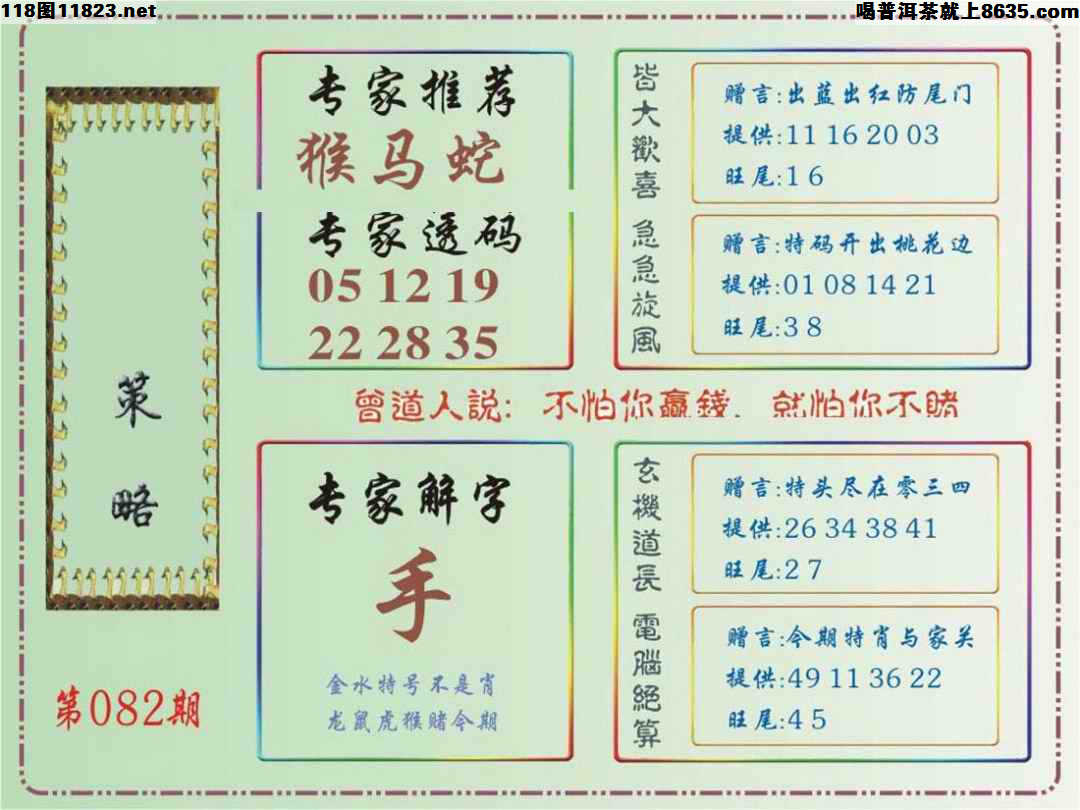 118图11823.net
喝普洱茶就上8635.com
策略
第082期
专家推荐
猴马蛇
专家透码
05 12 19
22 28 35
皆大歡喜
赠言:出蓝出红防尾门
提供:11 16 20 03
旺尾:1 6
急急旋風
赠言:特码开出桃花边
提供:01 08 14 21
旺尾:3 8
曾道人説: 不怕你贏錢. 就怕你不賭
专家解字
手
金水特号不是肖
龙鼠虎猴赌今期
玄機道長
赠言:特头尽在零三四
提供:26 34 38 41
旺尾:2 7
電腦絕算
赠言:今期特肖与家关
提供:49 11 36 22
旺尾:4 5